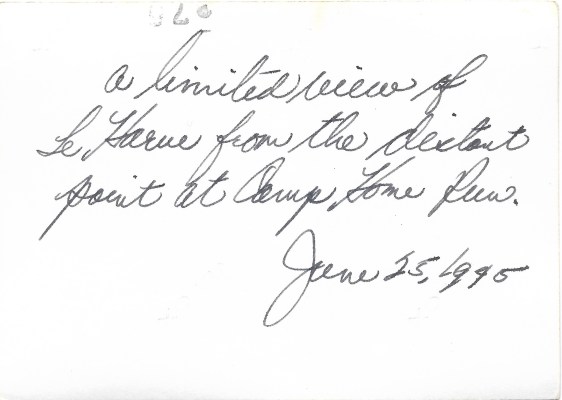 a limited view of
Le Harve from the distant
point at Camp Home Run.
June 25, 1945